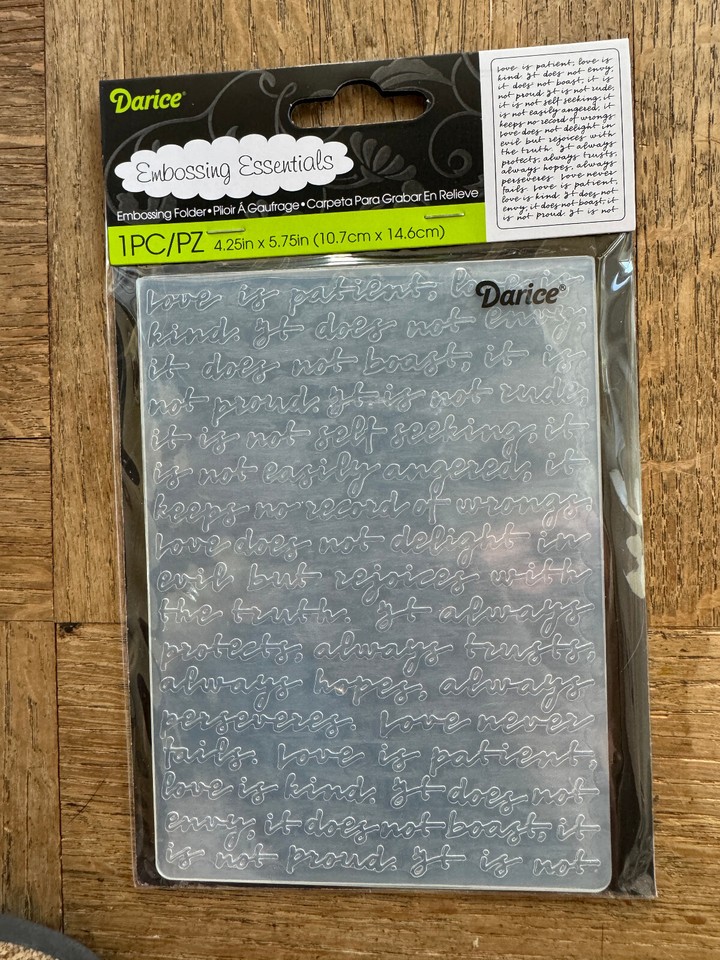 Darice®
Embossing Essentials
Embossing Folder • Plioir Á Gaufrage • Carpeta Para Grabar En Relieve
1PC/PZ 4.25in x 5.75in (10.7cm x 14.6cm)
love is patient, love is
kind. It does not envy,
it does not boast, it is
not proud. It is not rude,
it is not self seeking, it
is not easily angered, it
keeps no record of wrongs.
Love does not delight in
evil but rejoices with
the truth. It always
protects, always trusts,
always hopes, always
perseveres. Love never
fails. Love is patient,
love is kind. It does not
envy, it does not boast, it
is not proud. It is not
Darice®
Love is patient,
kind. It does not envy,
it does not boast, it is
not proud. It is not rude,
it is not self seeking, it
is not easily angered, it
keeps no record of wrongs.
Love does not delight in
evil but rejoices with
the truth. It always
protects, always trusts,
always hopes, always
perseveres. Love never
fails. Love is patient,
love is kind. It does not
envy, it does not boast, it
is not proud. It is not